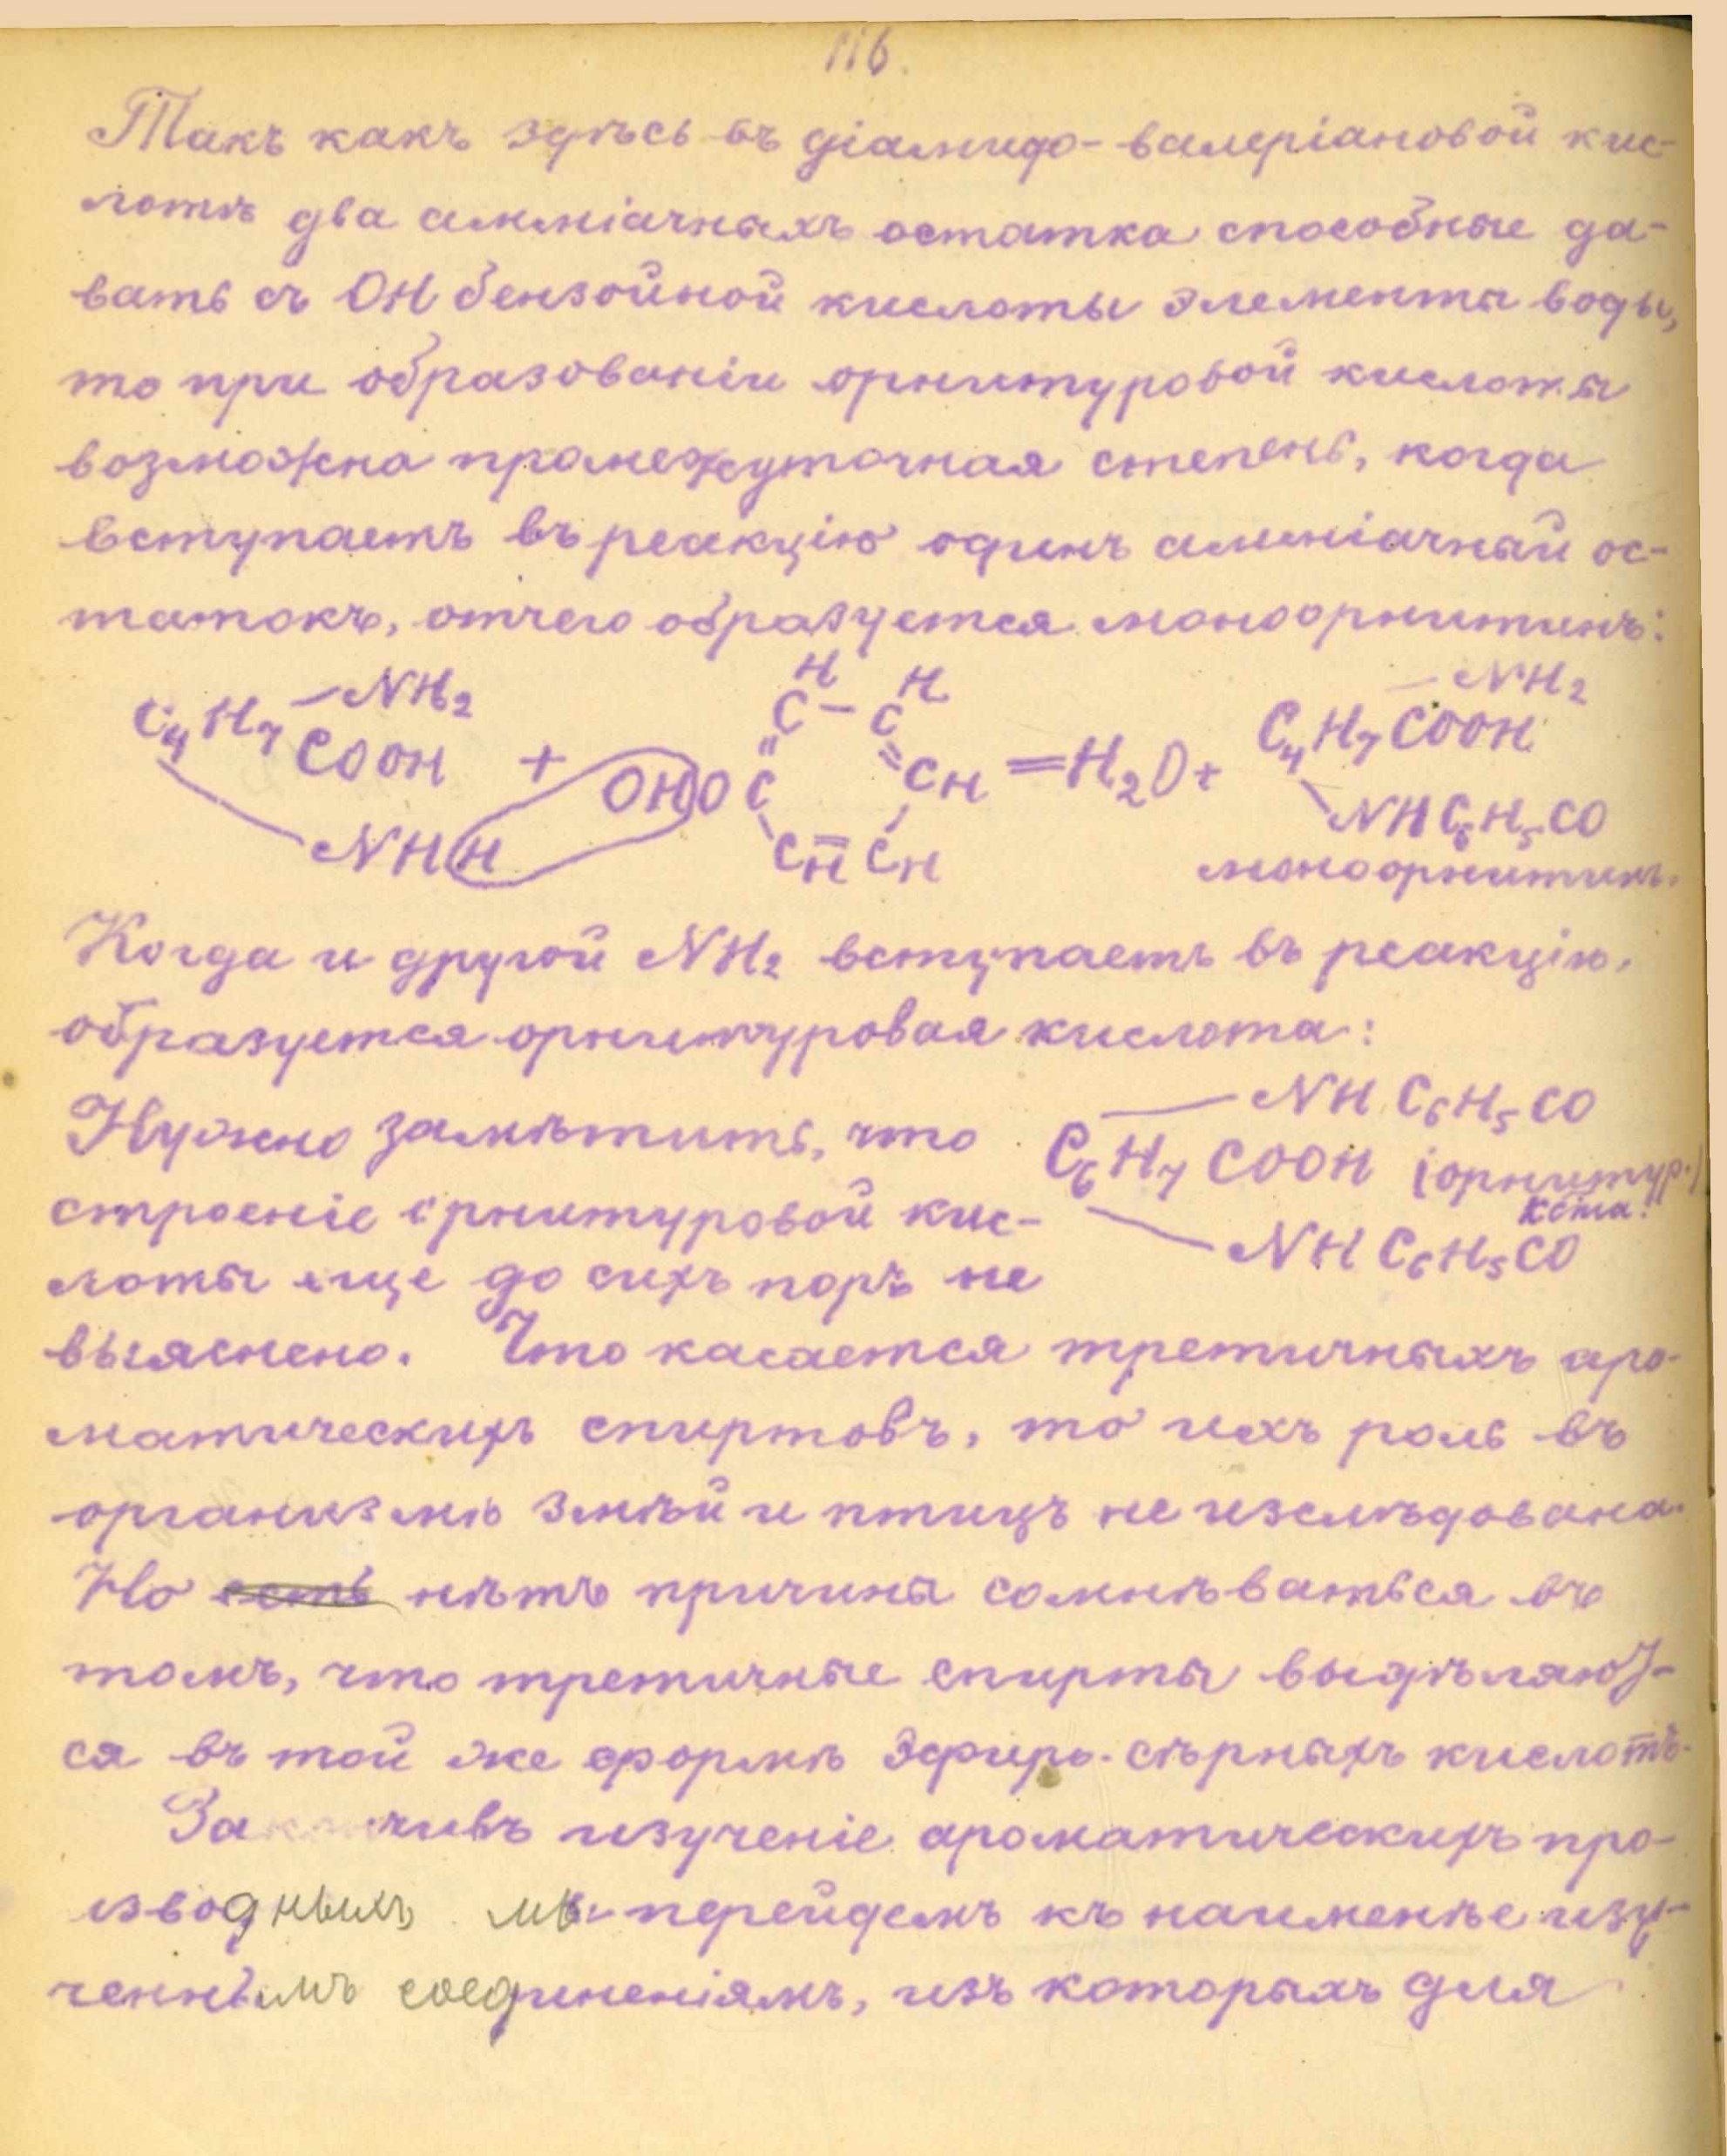 116.
Такъ какъ здѣсь въ діамидо-валеріановой кис-
лотѣ два амміачныхъ остатка способные да-
вать съ ОН бензойной кислоты элементы воды,
то при образованіи орнитуровой кислоты
возможна промежуточная степень, когда
вступаетъ въ реакцію одинъ амміачный ос-
татокъ, отчего образуется моноорнитинъ:
H H
C₄H₇ —NH₂ C — C C₄H₇ —NH₂
COOH + OHOC CH = H₂O + COOH
NHH CH CH NHC₆H₅CO
моноорнитинъ.
Когда и другой NH₂ вступаетъ въ реакцію,
образуется орнитуровая кислота:
Нужно замѣтить, что
строеніе орнитуровой кис-
лоты еще до сихъ поръ не
—NH C₆H₅CO
C₆H₇ COOH (орнитур.)
кᶜᴸта.
—NH C₆H₅CO
выяснено. Что касается третичныхъ аро-
матическихъ спиртовъ, то ихъ роль въ
организмѣ змѣй и птицъ не изслѣдована.
Но есть нѣтъ причины сомнѣваться въ
томъ, что третичные спирты выдѣляют-
ся въ той же формѣ эфиро-сѣрныхъ кислотъ.
Закончивъ изученіе ароматическихъ про-
изводныхъ мы перейдемъ къ наименѣе изу-
ченнымъ соединеніямъ, изъ которыхъ для